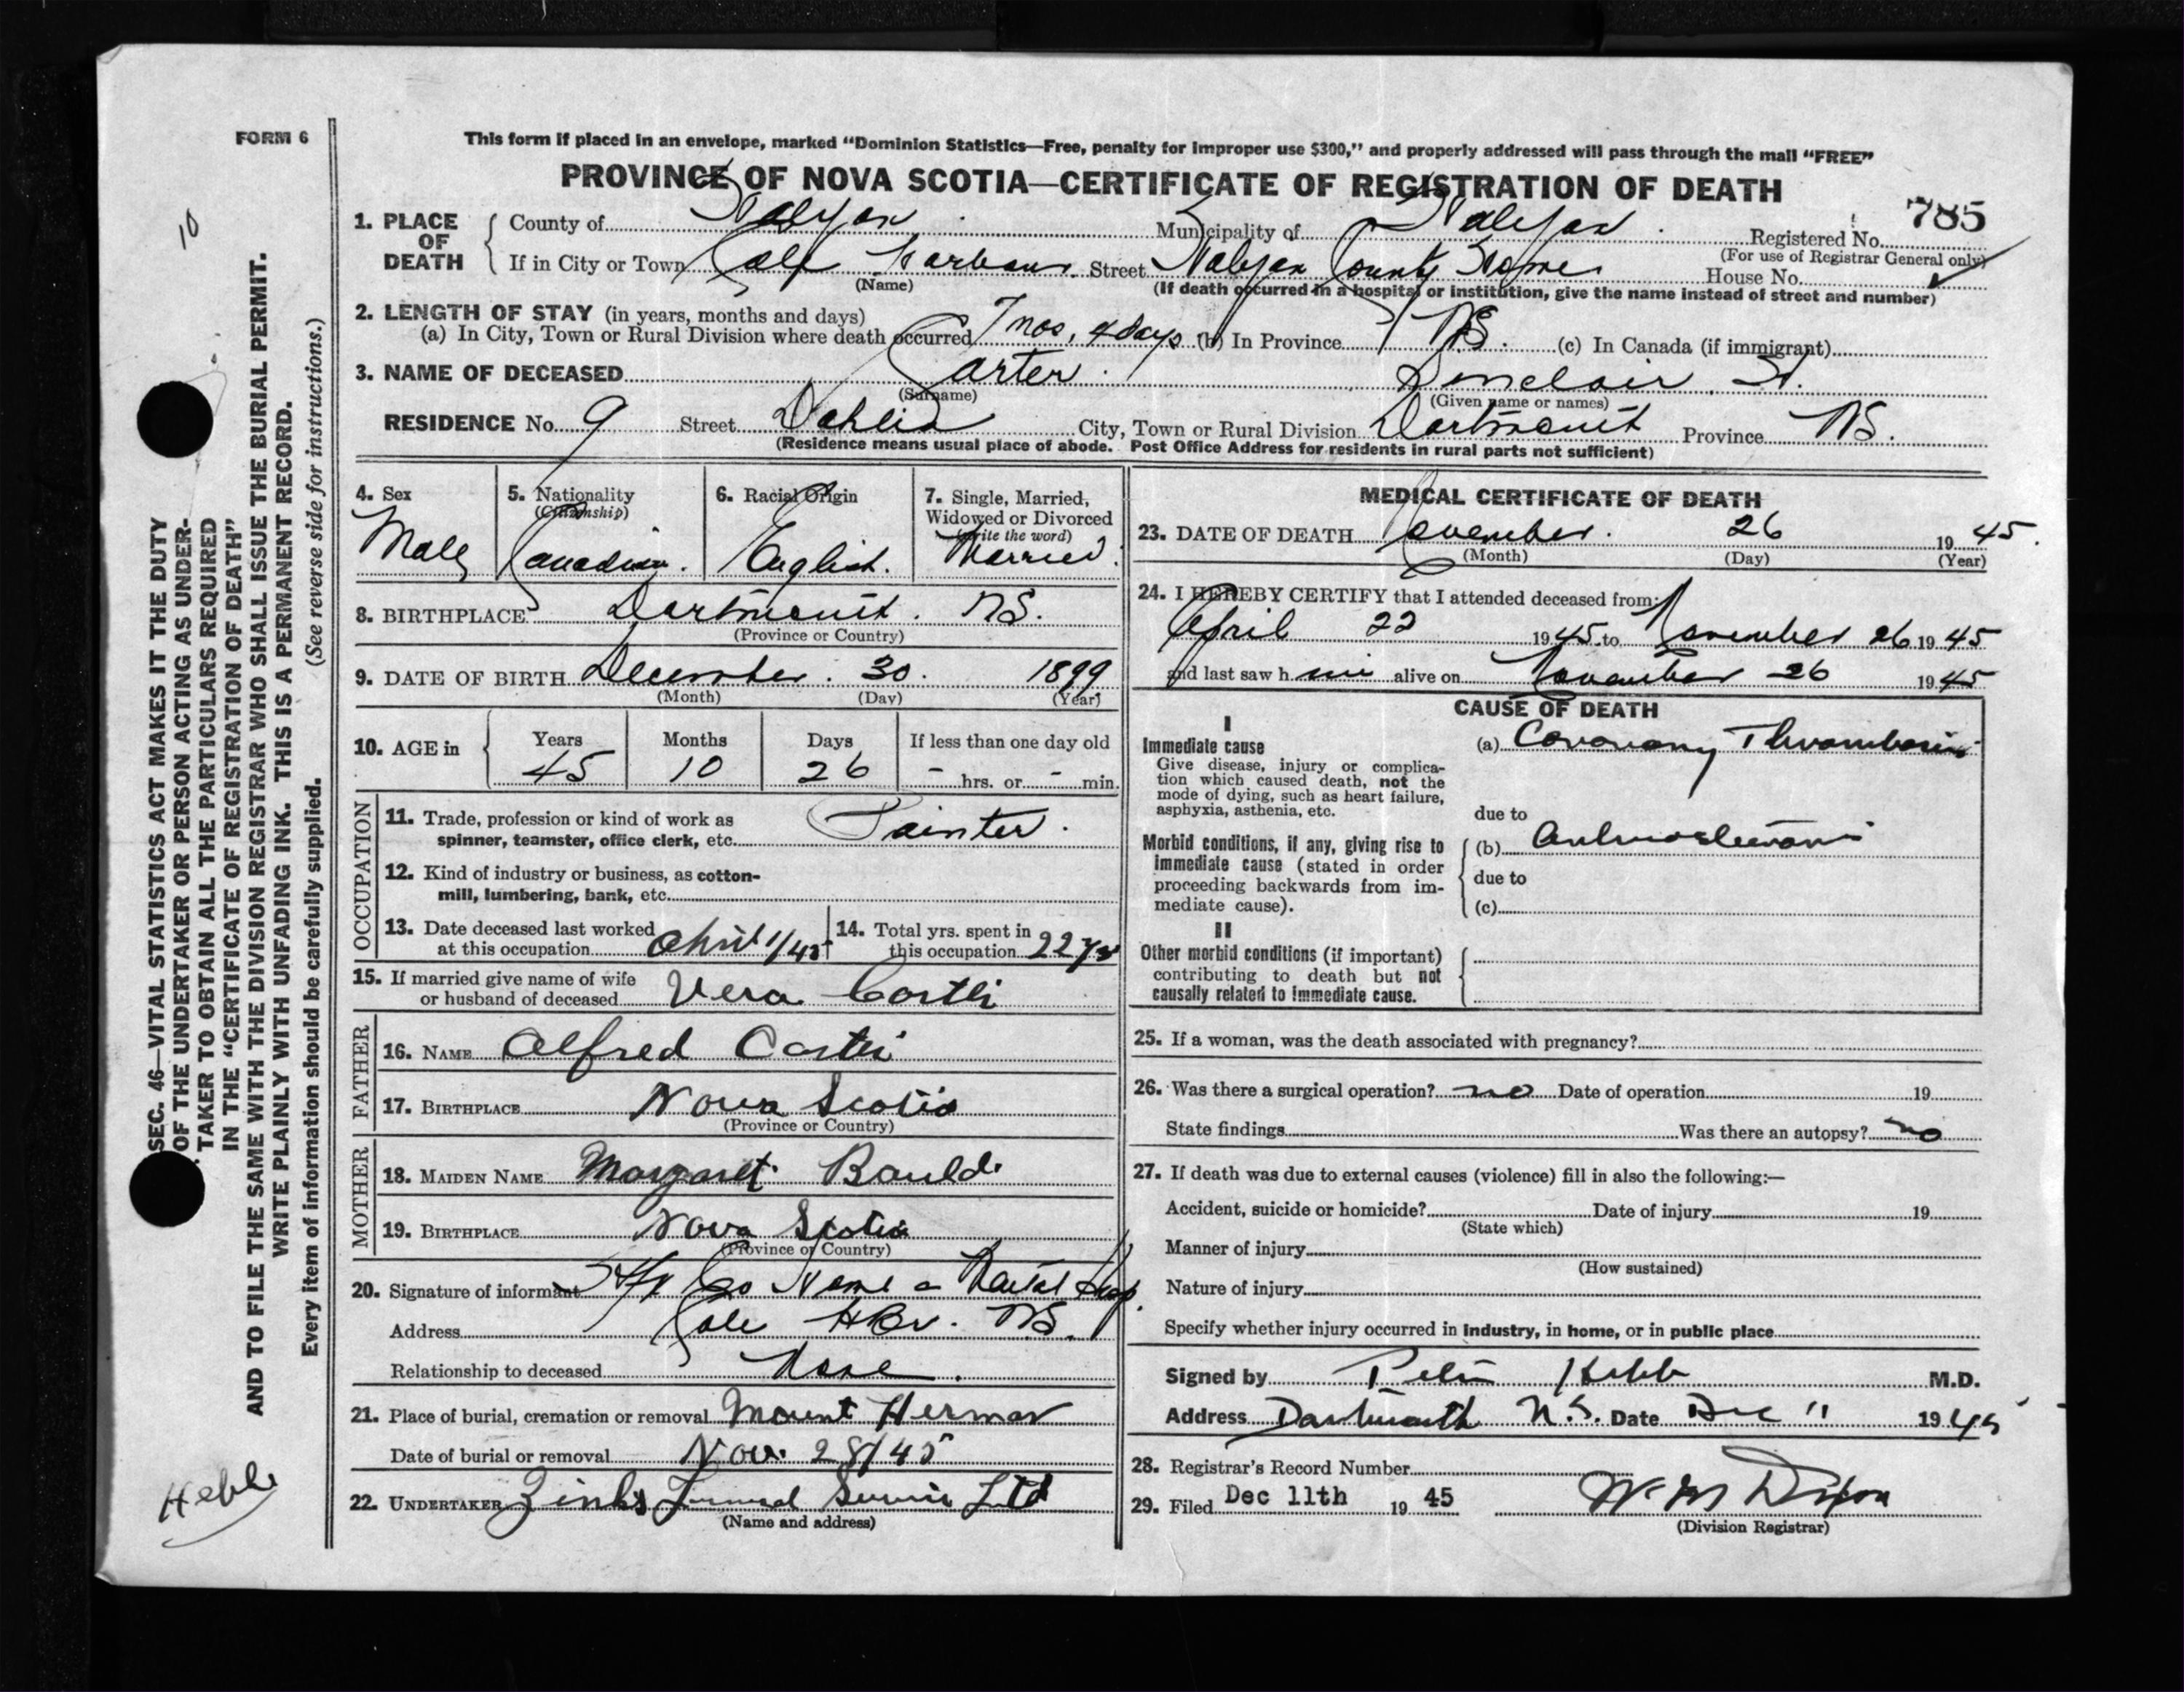 FORM 6
This form if placed in an envelope, marked "Dominion Statistics—Free, penalty for improper use $300," and properly addressed will pass through the mail "FREE"
PROVINCE OF NOVA SCOTIA—CERTIFICATE OF REGISTRATION OF DEATH
785
10
1. PLACE OF DEATH
County of Halifax Municipality of Halifax Registered No.
(For use of Registrar General only)
If in City or Town Cole Harbour Street Halifax County Home House No.
(Name) (If death occurred in a hospital or institution, give the name instead of street and number)
2. LENGTH OF STAY (in years, months and days)
(a) In City, Town or Rural Division where death occurred 7 mos, 4 days (b) In Province NS. (c) In Canada (if immigrant)
3. NAME OF DECEASED Carter Sinclair
(Surname) (Given name or names)
RESIDENCE No. 9 Street Dahlia City, Town or Rural Division Dartmouth Province NS.
(Residence means usual place of abode. Post Office Address for residents in rural parts not sufficient)
4. Sex
Male
5. Nationality
(Citizenship)
Canadian.
6. Racial Origin
English.
7. Single, Married,
Widowed or Divorced
(write the word)
Married.
8. BIRTHPLACE Dartmouth. NS.
(Province or Country)
9. DATE OF BIRTH December. 30. 1899
(Month) (Day) (Year)
10. AGE in
Years Months Days If less than one day old
45 10 26 - hrs. or - min.
OCCUPATION
11. Trade, profession or kind of work as
spinner, teamster, office clerk, etc. Painter.
12. Kind of industry or business, as cotton-
mill, lumbering, bank, etc.
13. Date deceased last worked
at this occupation April 1/45
14. Total yrs. spent in
this occupation 22 yrs
15. If married give name of wife
or husband of deceased Vera Carter
FATHER
16. NAME Alfred Carter
17. BIRTHPLACE Nova Scotia
(Province or Country)
MOTHER
18. MAIDEN NAME Margaret Bauld
19. BIRTHPLACE Nova Scotia
(Province or Country)
20. Signature of informant Hfx Co Home & Mental Hosp.
Address Cole HBr. NS.
Relationship to deceased None.
21. Place of burial, cremation or removal Mount Hermon
Date of burial or removal Nov. 28/45
22. UNDERTAKER Zinks Funeral Service Ltd
(Name and address)
MEDICAL CERTIFICATE OF DEATH
23. DATE OF DEATH November. 26 19 45.
(Month) (Day) (Year)
24. I HEREBY CERTIFY that I attended deceased from:
April 22 19 45 to November 26 19 45
and last saw h im alive on November 26 19 45
CAUSE OF DEATH
I
Immediate cause
Give disease, injury or complica-
tion which caused death, not the
mode of dying, such as heart failure,
asphyxia, asthenia, etc.
(a) Coronary Thrombosis
due to
Morbid conditions, if any, giving rise to
immediate cause (stated in order
proceeding backwards from im-
mediate cause).
(b)
due to
(c)
II
Other morbid conditions (if important)
contributing to death but not
causally related to immediate cause.
25. If a woman, was the death associated with pregnancy?
26. Was there a surgical operation? no Date of operation 19
State findings Was there an autopsy? no
27. If death was due to external causes (violence) fill in also the following:—
Accident, suicide or homicide? Date of injury 19
(State which)
Manner of injury
(How sustained)
Nature of injury
Specify whether injury occurred in industry, in home, or in public place
Signed by Peter Hebb M.D.
Address Dartmouth N.S. Date Dec 11 19 45
28. Registrar's Record Number
29. Filed Dec 11th 19 45
(Division Registrar)
SEC. 46—VITAL STATISTICS ACT MAKES IT THE DUTY
OF THE UNDERTAKER OR PERSON ACTING AS UNDER-
TAKER TO OBTAIN ALL THE PARTICULARS REQUIRED
IN THE "CERTIFICATE OF REGISTRATION OF DEATH"
AND TO FILE THE SAME WITH THE DIVISION REGISTRAR WHO SHALL ISSUE THE BURIAL PERMIT.
WRITE PLAINLY WITH UNFADING INK. THIS IS A PERMANENT RECORD.
Every item of information should be carefully supplied. (See reverse side for instructions.)
Hebb